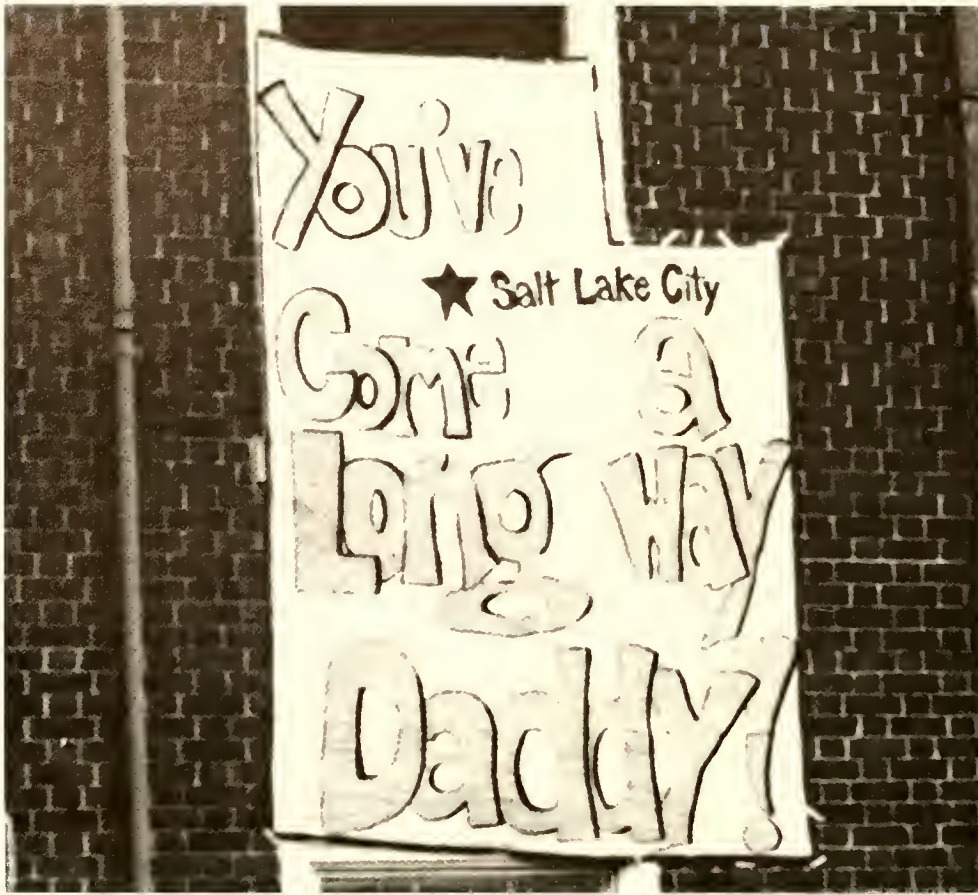 You've
★ Salt Lake City
Come a
Long Way
Daddy!